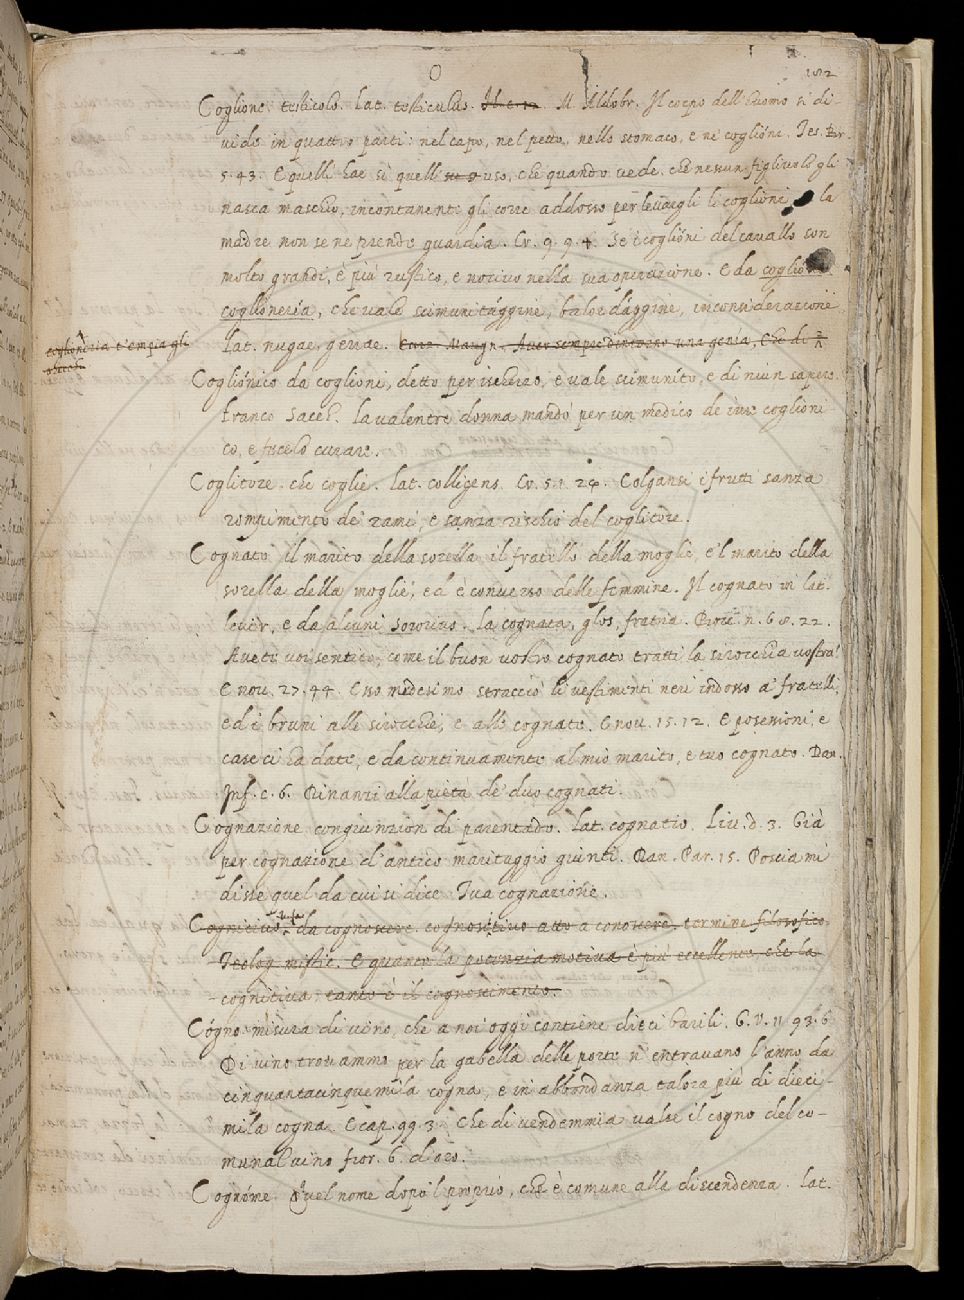 O
182
Coglione. testicolo. Lat. testiculus. M. Aldobr. Il corpo dell'huomo si di-
vide in quattro parti: nel capo, nel petto, nello stomaco, e ne' coglióni. Tes. Br.
5. 43. E quelli hae sì quell uso, che quando vede, che nessun figliuolo gli
nasca maschio, incontanente gli corre addosso per levargli li coglioni la
madre non se ne prende guardia. Cr. 9. 9. 4. Se i coglióni del cavallo son
molto grandi, è più rustico, e nocivo nella sua operazione. E da coglione
coglioneria, che vale scimunitággine, balordággine, inconsiderazione
coglioneria t'empia gli
Lat. nugae, gerrae. Aver sempre dintorno una genia, Che di
Coglióníco da coglioni, detto per ischerzo, e vale scimuníto, e di niun sapere.
Franco Sacch. La valentre donna mandò per un medico de coglioni
co, e fecelo curare.
Coglitore. che coglie. Lat. colligens. Cr. 5. 1. 24. Colgansi i frutti sanza
rompimento de' rami, e sanza rischio del coglitore.
Cognato il marito della sorella il fratello della moglie, e'l marito della
sorella della moglie, ed è converso delle femmine. Il cognato in lat.
levir, e da alcuni sororius. la cognata, glos, fratria. Bocc. n. 68. 22.
Avete voi sentito, come il buon vostro cognato tratti la sirocchia vostra?
E nov. 27. 44. Esso medesimo stracciò li vestimenti neri indosso a' fratelli,
ed i bruni alle sirocchie, e alle cognate. E nov. 15. 12. E posessioni, e
case ci ha date, e da continuamente al mio marito, e tuo cognato. Dan.
Inf. c. 6. Dinanzi alla pietà de' duo cognati.
Cognazione. congiunzion di parentado. Lat. cognatio. Liv. d. 3. Già
per cognazione d'antico maritaggio giunti. Dan. Par. 15. Poscia mi
disse quel da cui si dice Tua cognazione.
Cognitivo, da cognoscere. cognositivo atto a conoscere, termine filosofico
Teolog mistic. E quanto la potenzia motiva è più eccellente, che la
cognitiva: tanto è il cognoscimento.
Cógno. misura di vino, che a noi oggi contiene dieci barili. G. V. 11. 93. 6
Di vino trovammo per la gabella delle porte n'entravano l'anno da
cinquantacinquemila cogna, e in abbondanza talora più di dieci-
mila cogna. E cap. 99. 3. Che di vendemmia valse il cogno del co-
munal vino fior. 6. d'oro.
Cognóme. Quel nome dopo'l proprio, che è comune alla discendenza. Lat.